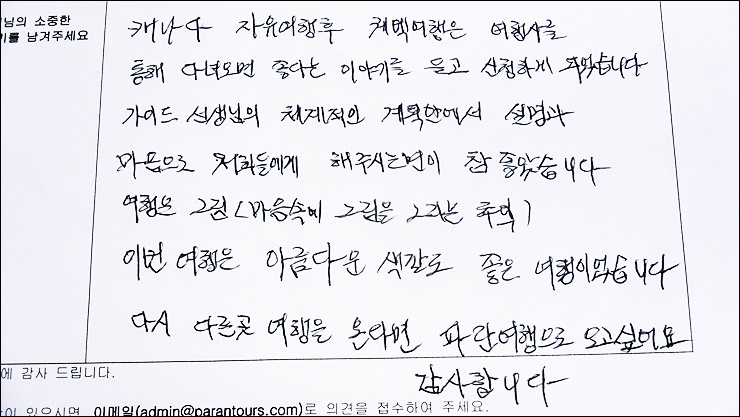 님의 소중한
기를 남겨주세요
캐나다 자유여행후 퀘벡여행은 여행사를
통해 다녀오면 좋다는 이야기를 듣고 신청하게 되었습니다
가이드 선생님의 체계적인 계획안에서 설명과
마음으로 저희들에게 해주시는면이 참 좋았습니다
여행은 그림 (마음속에 그림을 그리는 추억)
이번 여행은 아름다운 색깔로 좋은 여행이었습니다
다시 다른곳 여행을 온다면 파란여행으로 오고싶어요
감사합니다
에 감사 드립니다.
이 있으시면 이메일(admin@parantours.com)로 의견을 접수하여 주세요.